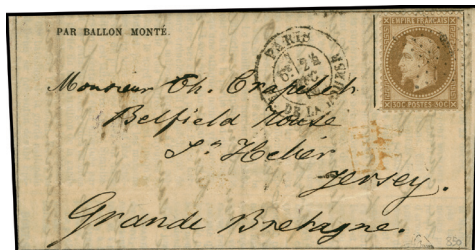 PAR BALLON MONTÉ.
PARIS
DE LA
EMPIRE FRANÇAIS
30C POSTES 30C
Monsieur Th.
Belfield House
St Helier
Jersey.
Grande Bretagne.